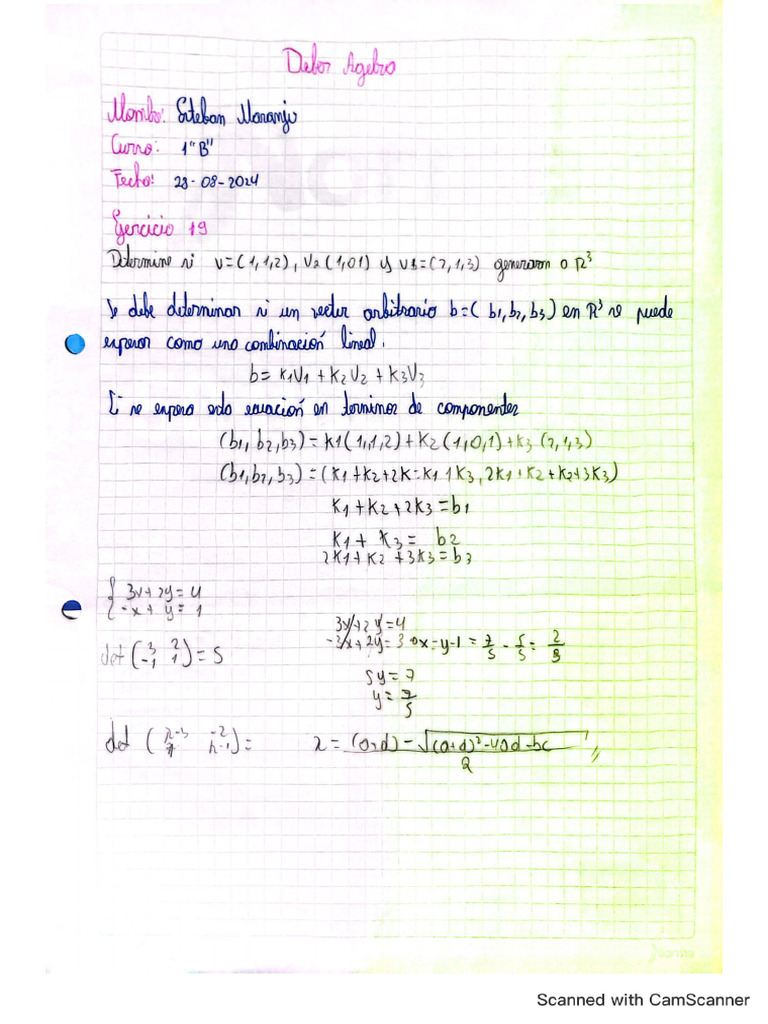 Deber Agebra
Nombre: Esteban Naranjo
Curso: 1 "B"
Fecha: 28-08-2024
Ejercicio 19
Determine si v=(1,1,2), V2(1,01) y v3=(2,1,3) generaron a R³
Se debe determinar si un vector arbitrario b=(b1,b2,b3) en R³ se puede
expesar como una combinación lineal.
b= K1V1 + K2V2 + K3V3
Si se expesa esta ecuación en terminos de componentes
(b1, b2, b3) = K1(1,1,2) + K2(1,0,1) + K3(2,1,3)
(b1, b2, b3) = (K1+K2+2K=K1 1K3, 2K1+K2+K2+3K3)
K1+K2+2K3=b1
K1+ K3= b2
2K1+K2+3K3=b3
{ 3x+2y=4
-x+y=1
3x+2y=4
-3x+2y=3 0x=y-1= 7/5 - 5/5 = 2/5
det (3 2
-1 1) = 5
5y=7
y= 7/5
det (λ-3 -2
λ-1) = λ = (a+d) - √(a+d)²-4ad-bc
2
Norma
Scanned with CamScanner